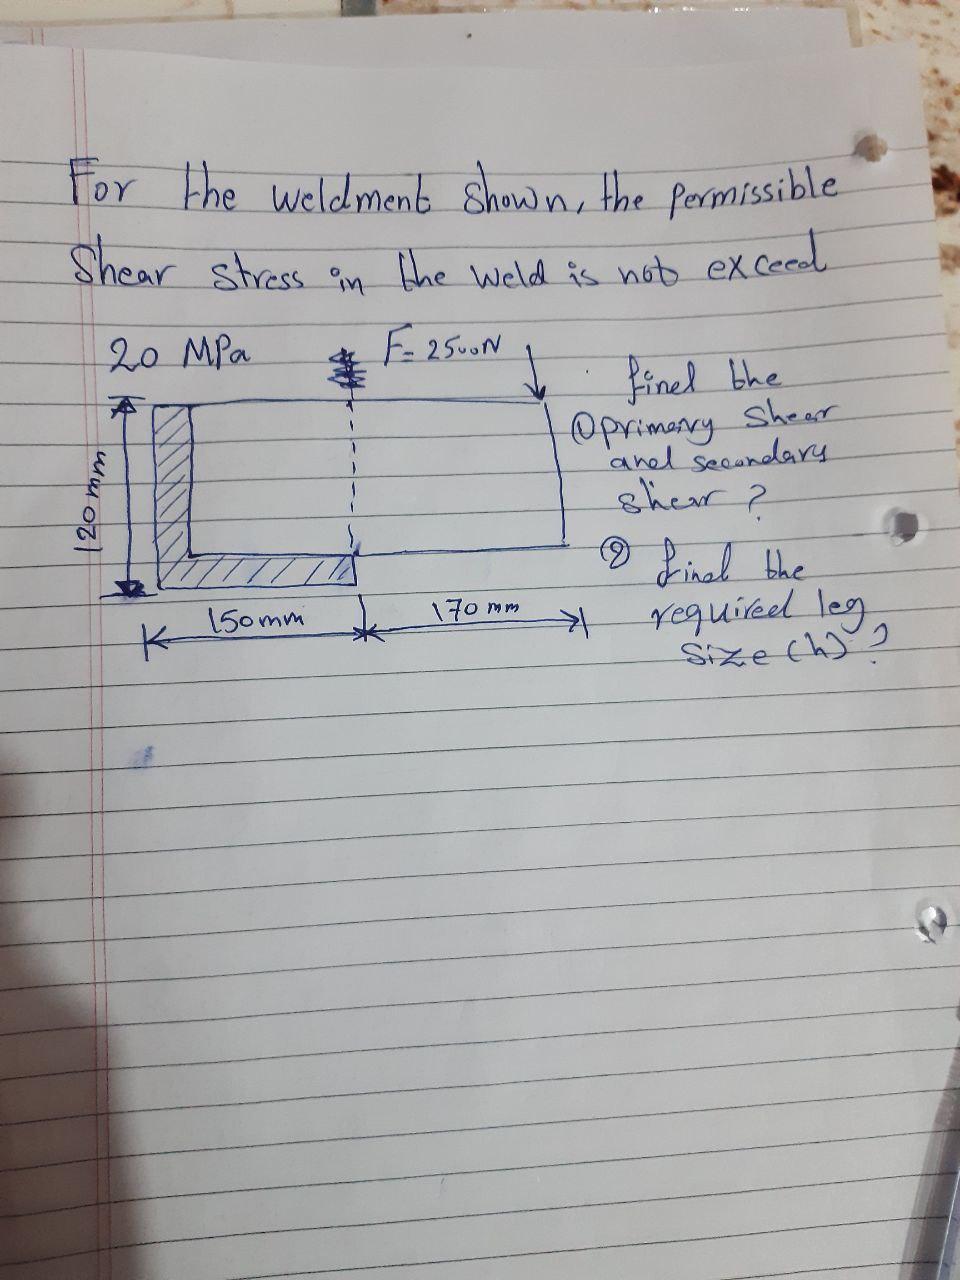 For the weldment shown, the permissible
Shear stress in the weld is not exceed
20 MPa
F= 2500N
120 mm
150mm
170 mm
find the
① primary shear
and secondary
shear ?
② find the
required leg
size (h) ?